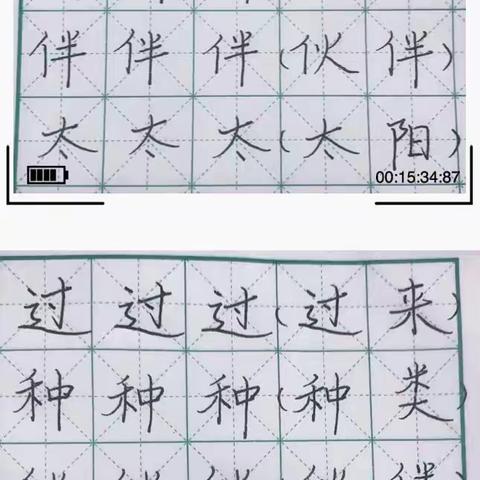 伴伴伴(伙伴)
太太太(太阳)
00:15:34:87
过过过(过来)
种种种(种类)